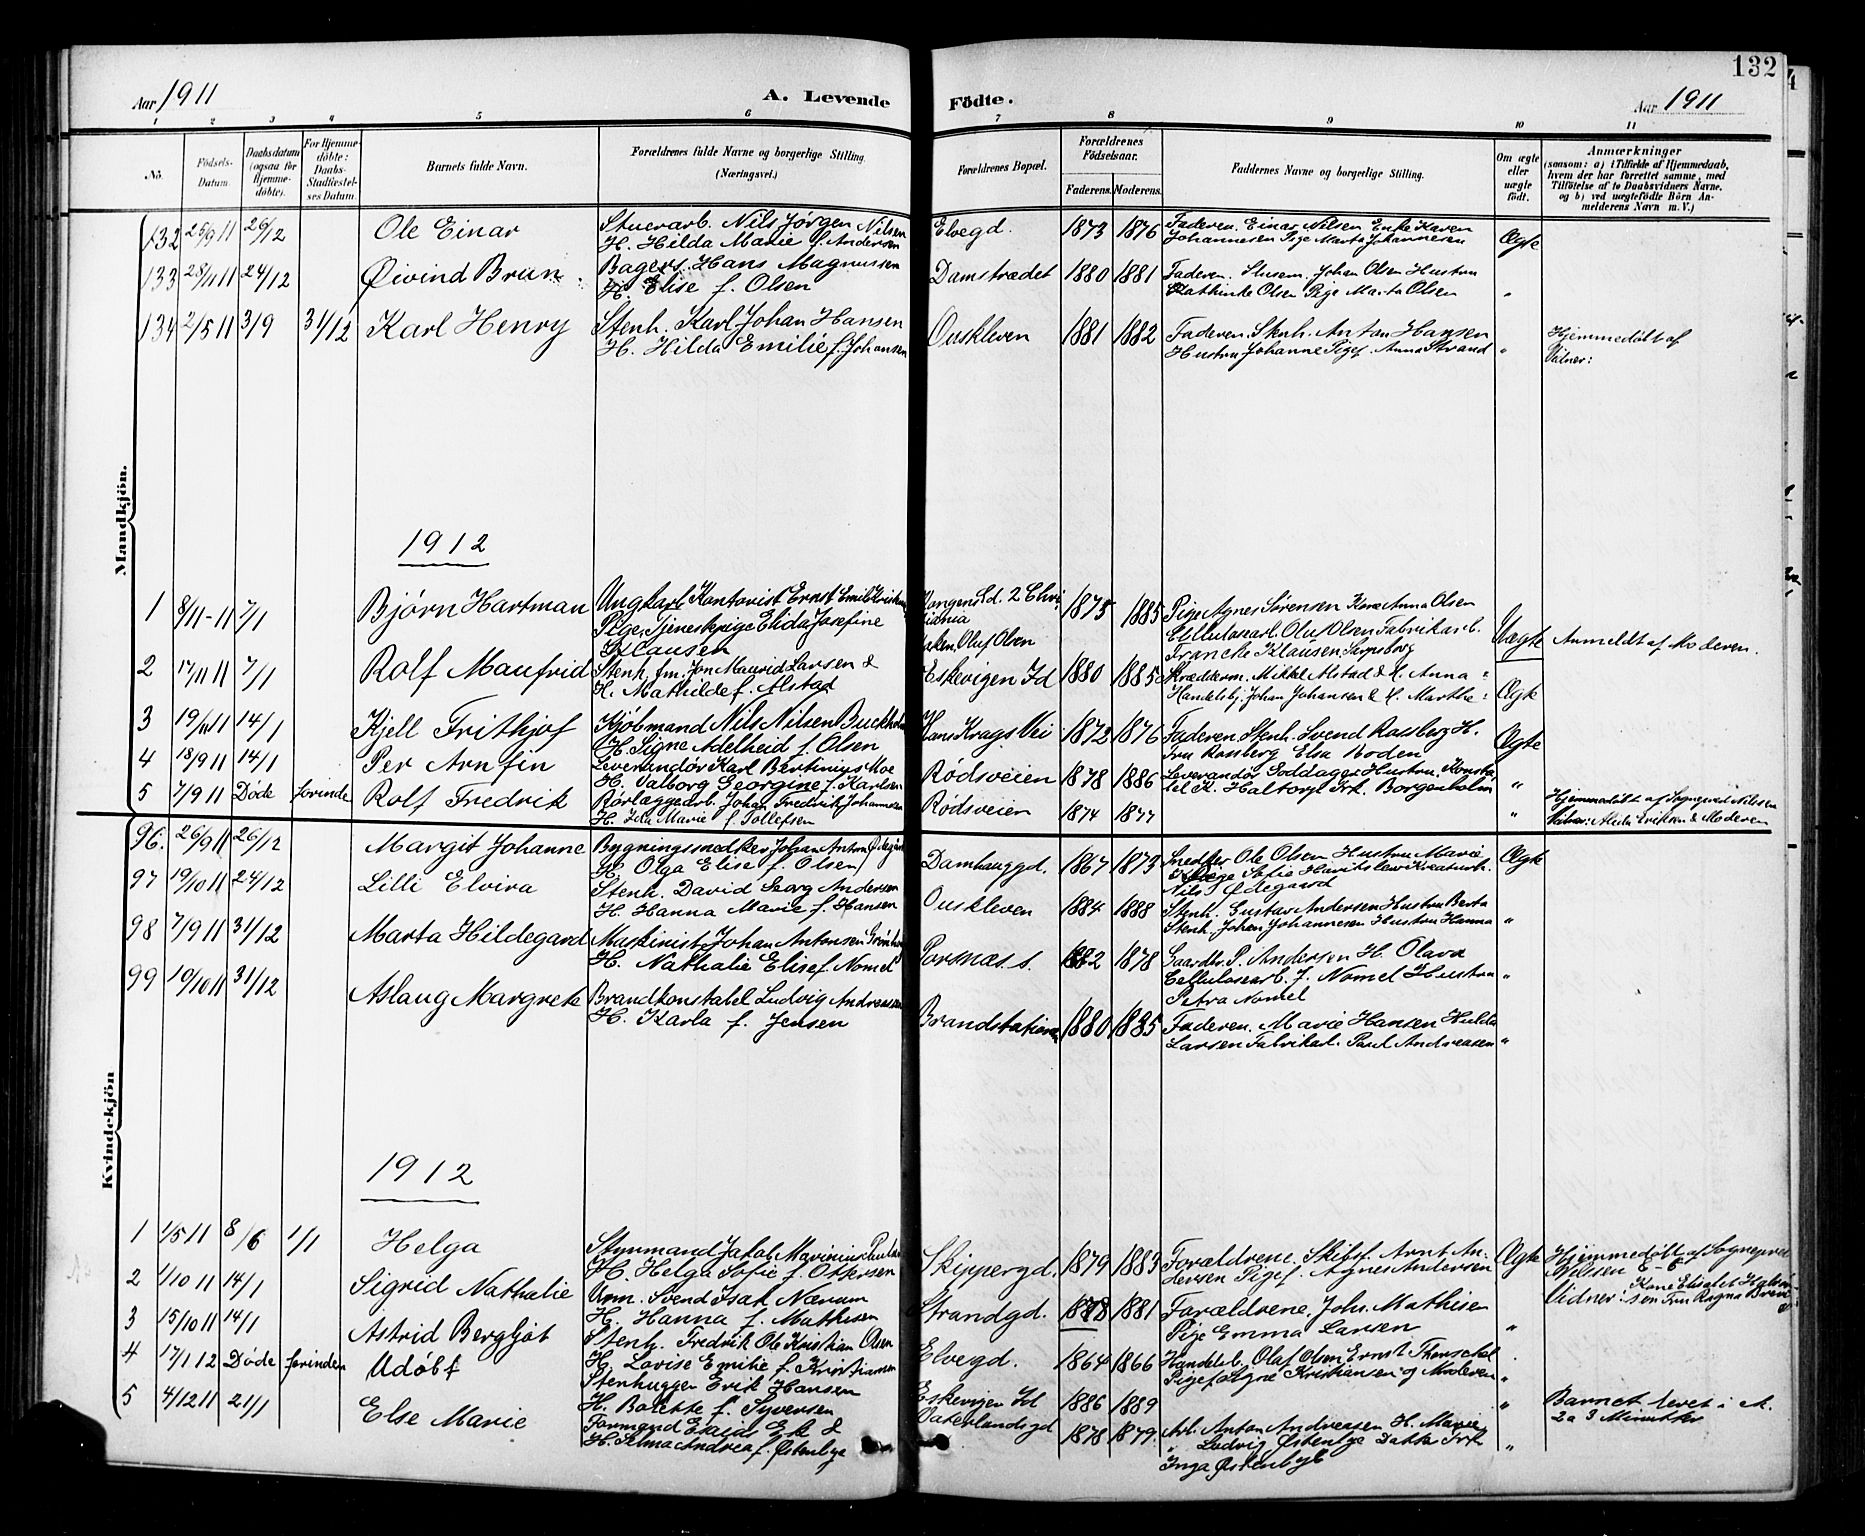 132
Aar 1911
A. Levende Födte.
Aar 1911
1 2 3 4 5 6 7 8 9 10 11
No. Födsels-Datum. Daabsdatum (ogsaa for Hjemmedöbte). For Hjemmedöbte: Daabs-Stadfæstelses Datum. Barnets fulde Navn. Forældrenes fulde Navne og borgerlige Stilling. (Næringsvei.) Forældrenes Bopæl. Forældrenes Födselsaar. Faderens. Moderens. Faddernes Navne og borgerlige Stilling. Om ægte eller uægte födt. Anmærkninger (saasom: a) i Tilfælde af Hjemmedaab, hvem der har forrettet samme, med Tilföielse af to Daabsvidners Navne. og b) ved uægtefödte Börn Anmelderens Navn m. V.)
Mandkjön.
132 25/9 11 26/12 Ole Einar Stuerarb. Nils Jørgen Nilsen Elvegd. 1873 1876 Faderen. Einar Nilsen Enke Karen
H. Hilda Marie f. Andersen Johannesen Pige Marta Johannesen Ægte
133 28/11 11 24/12 Øivind Brun Bagers. Hans Magnussen Damstrædet 1880 1881 Faderen. Johan Olsen Hustru
H. Elise f. Olsen Kathinke Olsen Pige Marta Olsen "
134 2/5 11 3/9 31/12 Karl Henry Stenh. Karl Johan Hansen Ouskleven 1881 1882 Faderen. Stenh. Anton Hansen Hjemmedøbt af
H. Hilda Emilie f. Johansen Hustru Johanne Pigef. Anna Strand " Vidner:
1912
1 8/11-11 7/1 Bjørn Hartman Ungkarl Kontorist Ernst Emil 1875 1885 Pige Agnes Sørensen Kone Anna Olsen
Pige, Tjenestepige Elida Josefine Cellulosearb. Oluf Olsen Fabrikarb.
Klausen Oluf Olsen Francke Klausen Sarpsborg Uægte Anmeldt af Moderen.
2 17/11 11 7/1 Rolf Manfrid Stenh. fm. Jon Maurid Larsen & Eskevigen Id 1880 1885 Skrædderm. Mikkel Alstad & H. Anna
H. Mathilde f. Alstad Handelsbj. Johan Johansen & H. Marthe Ægte
3 19/11 11 14/1 Kjell Frithjof Kjøbmand Nils Nilsen Hans Krags Vei 1872 1876 Faderen. Stenh. Svend Rossberg H.
H. Signe Adelheid f. Olsen Fru Rossberg Elsa Boden Ægte
4 18/9 11 14/1 Per Arnfin Leverandör Karl Bertinius Moe Rödsveien 1878 1886 Leverandör Hustru.
H. Valborg Georgine f. Karlsen H. Haltorp Frk. Borgenholm "
5 7/9 11 Døde forinden Rolf Fredrik Rörlæggerarb. Johan Fredrik Johannesen Rödsveien 1874 1877 " Hjemmedöbt af Sognepræst Nilsen
H. Ida Marie f. Tollefsen Vidner: Alida Eriksen & Moderen
Kvindekjön
96. 26/9 11 26/12 Margit Johanne Bygningssnedker Johan Anton Damhauggd. 1867 1873 Snedker Ole Olsen Hustru Marie Ægte
H. Olga Elise f. Olsen Sofie
97 19/10 11 24/12 Lilli Elvira Stenh. David Georg Andersen Nils Ødegaard
H. Hanna Marie f. Hansen Ouskleven 1884 1888 Stenh. Gustav Andersen Hustru Berta
Stenh. Johan Johannesen Hustru Hanna "
98 7/9 11 31/12 Marta Hildegard Maskinist Johan Antonsen
H. Nathalie Elise f. Nomel Pornæs s. 1882 1878 P. Andersen H. Olava
Cellulosearb. J. Nomel Hustru "
Petra Nomel
99 19/10 11 31/12 Aslaug Margrete Brandkonstabel Ludvig Andreassen
H. Karla f. Jensen Brandstationen 1880 1885 Faderen. Marie Hansen Hulda
Larsen Fabrikarb. Paul Andreasen "
1912
1 1/5 11 8/6 1/1 Helga Styrmand Jakob Marinius Skippergd. 1879 1883 Forældrene. Skibsf. Arnt An- Ægte Hjemmedøbt af Sognepræst
H. Helga Sofie f. dersen Pigef. Agnes Andersen Nilsen
2 1/10 11 14/1 Sigrid Nathalie Svend Isak Nærum Strandgd. 1878 1881 Forældrene, Joh. Mathisen Vidner: Kone Elisabet
H. Hanna f. Mathisen Pige Emma Larsen " Fru Ragna
3 15/10 11 14/1 Astrid Bergljot Stenh. Fredrik Ole Kristian Olsen Elvegd. 1864 1866 Handelsb. Olaf Olsen Ernst
H. Lovise Emilie f. Kristiansen Pigef. Signe Kristiansen og Moderen "
4 17/1 12 Døde forinden Udöbt Stenhugger Erik Hansen Eskevigen Id 1886 1889 " Barnet levet i
H. Bolette f. Syversen 2 a 3 Minutter
5 4/12 11 21/1 Else Marie Formand & Vaterlandsgd 1878 1879 Arb. Anton Andreasen H. Marie
H. Alma Andrea f. Østenbye Ludvig Østenbye Datter Frk "
Inga Østenbye